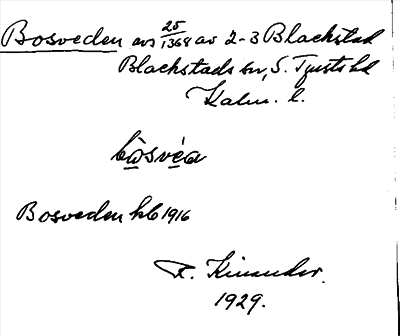 Bosveden avs 25/1368 av 2-3 Blackstad
Blackstads sn, S. Tjusts hd
Kalm. l.
bo̱sve̱a
Bosveden hfl 1916
R. Kinander.
1929.